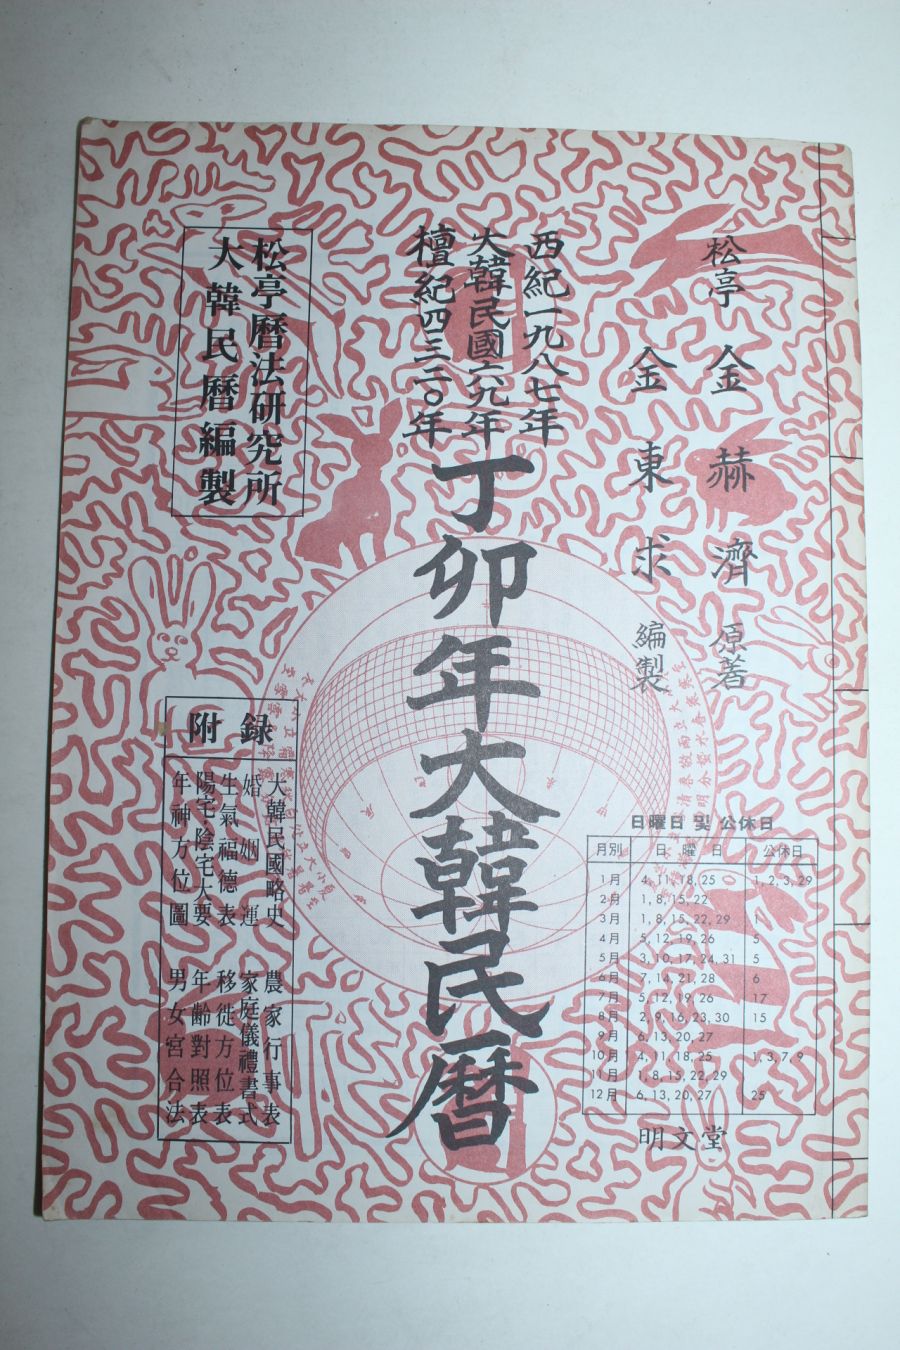 松亭 金赫濟 原著
金東求 編製
西紀一九八七年
大韓民國六九年
檀紀四三二〇年
丁卯年大韓民曆
松亭曆法研究所
大韓民曆編製
附錄
大韓民國略史 農家行事表
婚姻運 家庭儀禮書式
生氣福德表 移徙方位表
陽宅·陰宅大要 年齡對照表
年神方位圖 男女宮合法
日曜日 및 公休日
月別 日曜日 公休日
1月 4, 11, 18, 25 1, 2, 3, 29
2月 1, 8, 15, 22
3月 1, 8, 15, 22, 29 1
4月 5, 12, 19, 26 5
5月 3, 10, 17, 24, 31 5
6月 7, 14, 21, 28 6
7月 5, 12, 19, 26 17
8月 2, 9, 16, 23, 30 15
9月 6, 13, 20, 27
10月 4, 11, 18, 25 1, 3, 7, 9
11月 1, 8, 15, 22, 29
12月 6, 13, 20, 27 25
明文堂